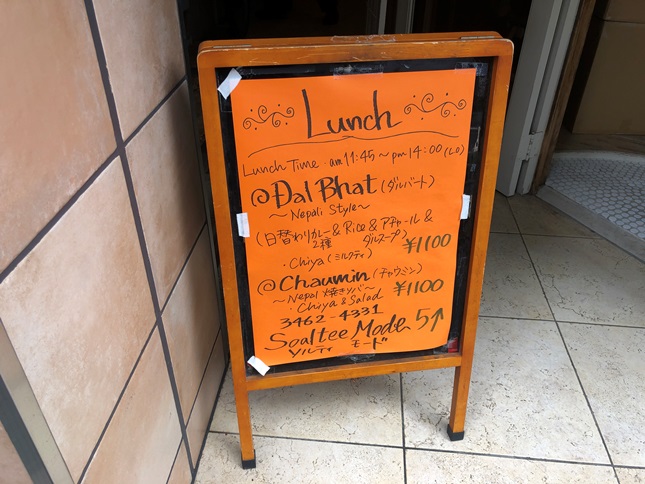 Lunch
Lunch Time am 11:45～pm 14:00 (L.O)
@Dal Bhat (ダルバート)
～Nepali Style～
(日替わりカレー & Rice & アチャール &
2種 ダルスープ)
・Chiya (ミルクティ) ¥1100
@Chaumin (チャウミン)
～Nepal 焼きソバ～ ¥1100
・Chiya & Salad
3462-4331
Soaltee Mode 5↑
ソルティ モード